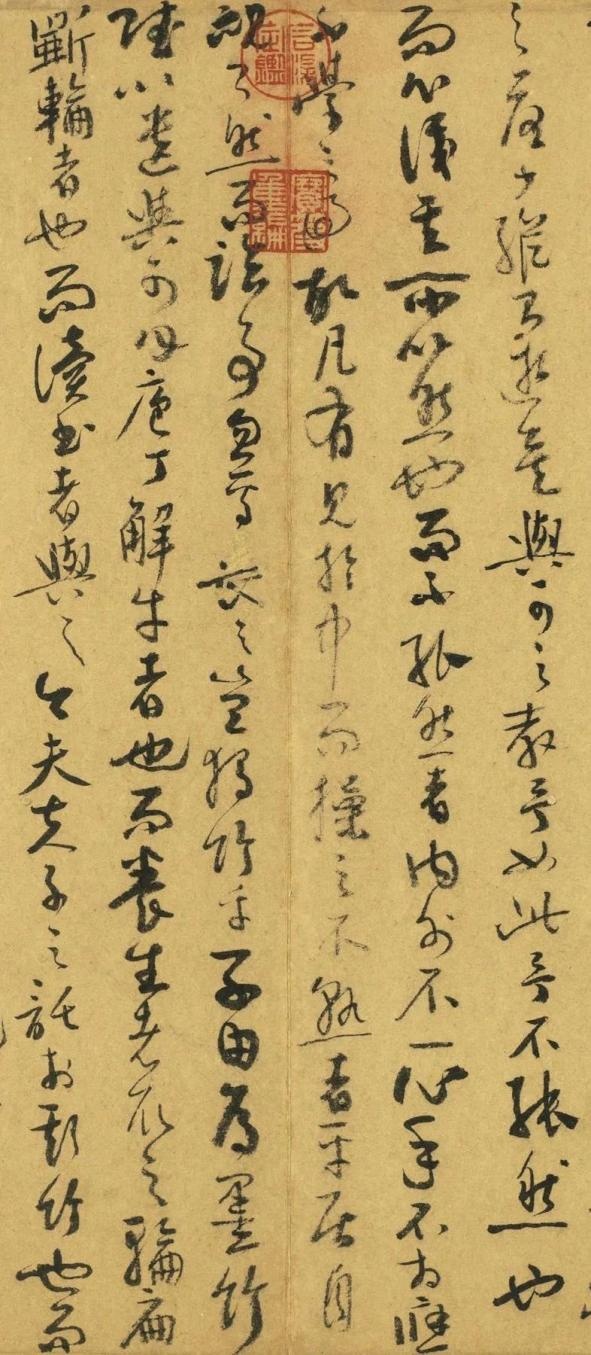 之落少縱則逝矣與可之教予如此予不能然也
而心識其所以然也而不能然者內外不一心手不相應
不學之過也故凡有見於中而操之不熟者平居自
視了然而臨事忽焉喪之豈獨竹乎子由為墨竹
賦以遺與可曰庖丁解牛者也而養生者取之輪扁
斲輪者也而讀書者與之今夫夫子之託於斯竹也而